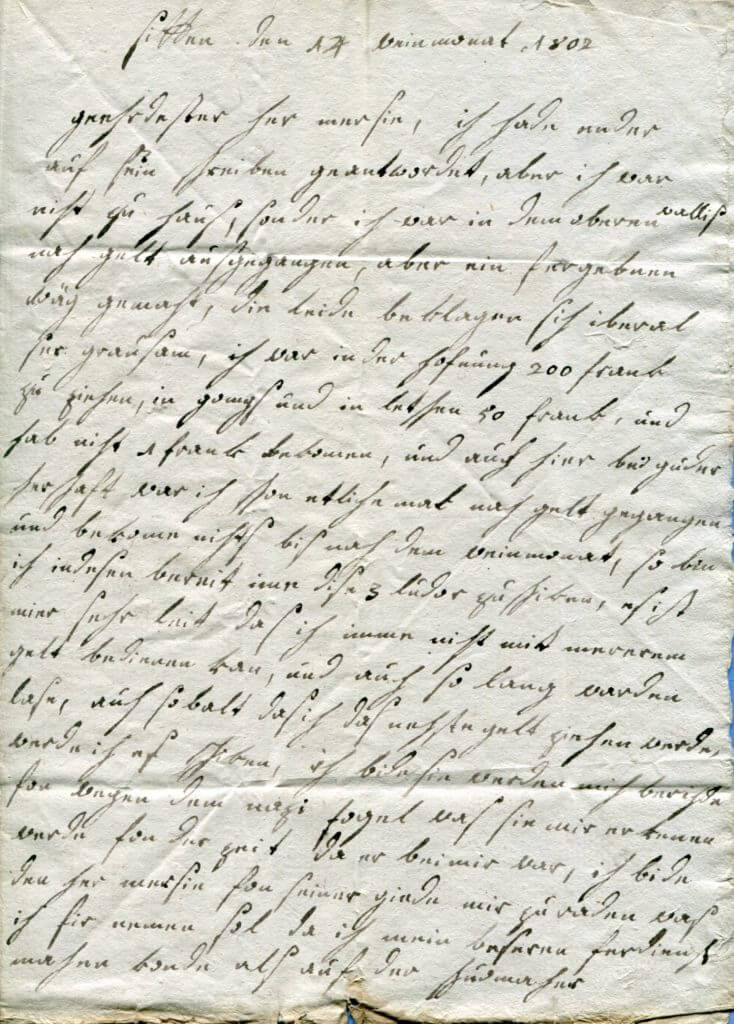 sitten den 14 weinmonat 1802
geehrdester her mersie, ich hade ender
auf sein schreiben geantwordet, aber ich war
nicht zu haus, sonder ich war in dem oberen wallis
nach gelt ausgegangen, aber ein fergebnen
wäg gemacht, die leide beklagen sich iberal
ser grausam, ich war in der hofnung 200 frank
zu ziehen, in gomps und in letschen 50 frank, und
hab nicht 1 frank bekomen, und auch hier bei guder
herschaft war ich schon etliche mal nach gelt gegangen
und bekome nichts bis nach dem weinmonat, so bin
ich indesen bereit ime dise 3 ludor zu schiken, es ist
mier sehr leit das ich imme nicht mit mererem
gelt bedienen kan, und auch so lang warden
lase, auch so balt das ich das nechste gelt ziehen werde,
werde ich es schiken, ich bide sie werden mich berichde
for wegen dem fogel was sie mir erkenen
werde fon der zeit da er bei mir war, ich bide
den her mersie fon seiner giede mir zu raden was
ich fir nemen sol da ich mein beseren ferdienst
machen konde als auf der hudmacher